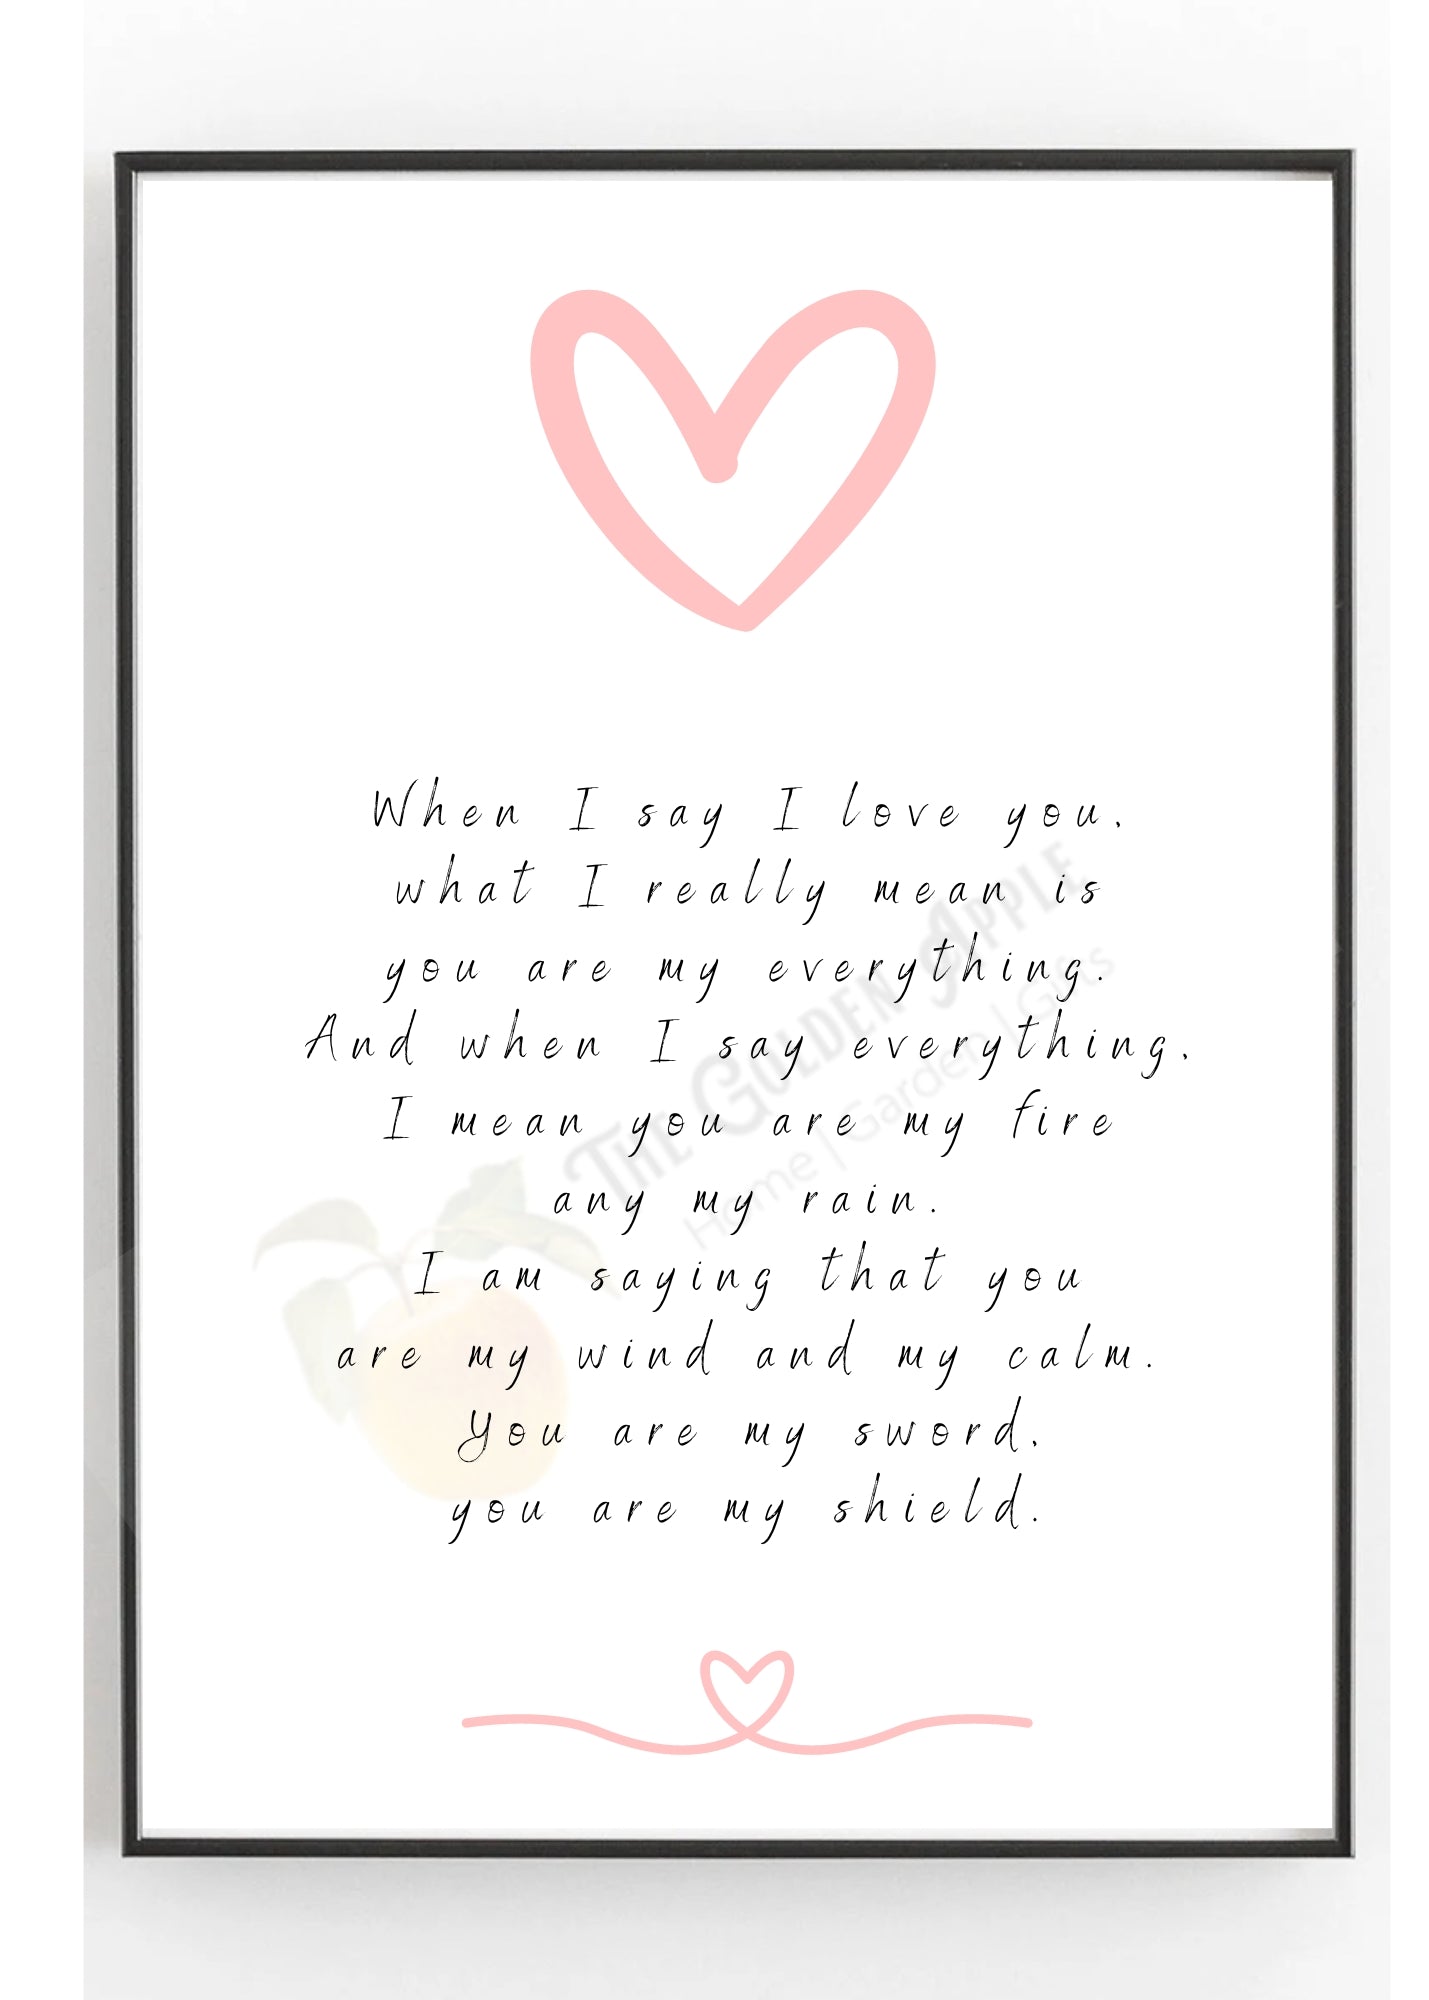 When I say I love you,
what I really mean is
you are my everything.
And when I say everything,
I mean you are my fire
any my rain.
I am saying that you
are my wind and my calm.
You are my sword,
you are my shield.
The Golden Apple
Home | Garden | Gifts